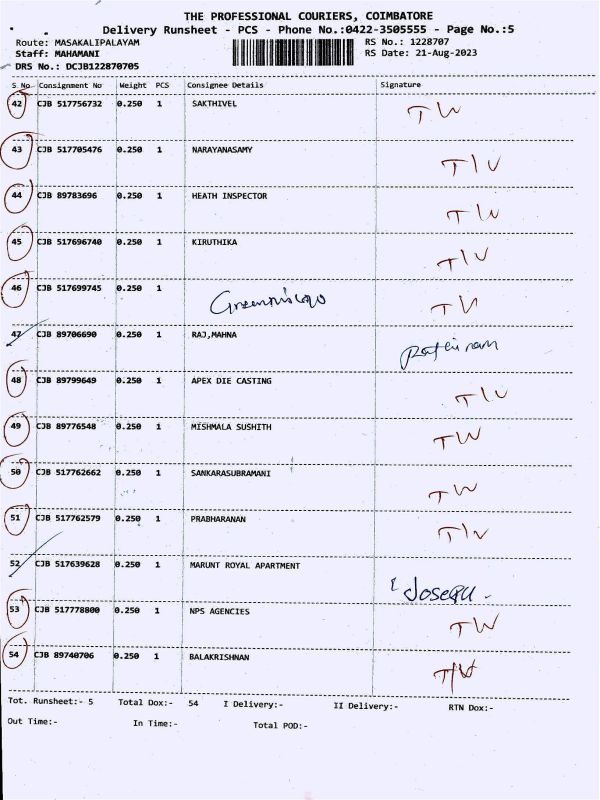 THE PROFESSIONAL COURIERS, COIMBATORE
Delivery Runsheet - PCS - Phone No.:0422-3505555 - Page No.:5
Route: MASAKALIPALAYAM RS No.: 1228707
Staff: MAHAMANI RS Date: 21-Aug-2023
DRS No.: DCJB122870705
S No Consignment No Weight PCS Consignee Details Signature
42 CJB 517756732 0.250 1 SAKTHIVEL TW
43 CJB 517705476 0.250 1 NARAYANASAMY TIV
44 CJB 89783696 0.250 1 HEATH INSPECTOR TIW
45 CJB 517696740 0.250 1 KIRUTHIKA TIV
46 CJB 517699745 0.250 1
47 CJB 89706690 0.250 1 RAJ,MAHNA
48 CJB 89799649 0.250 1 APEX DIE CASTING
49 CJB 89776548 0.250 1 MISHMALA SUSHITH TW
50 CJB 517762662 0.250 1 SANKARASUBRAMANI TW
51 CJB 517762579 0.250 1 PRABHARANAN TIV
52 CJB 517639628 0.250 1 MARUNT ROYAL APARTMENT
53 CJB 517778800 0.250 1 NPS AGENCIES TW
54 CJB 89740706 0.250 1 BALAKRISHNAN
Tot. Runsheet:- 5 Total Dox:- 54 I Delivery:- II Delivery:- RTN Dox:-
Out Time:- In Time:- Total POD:-